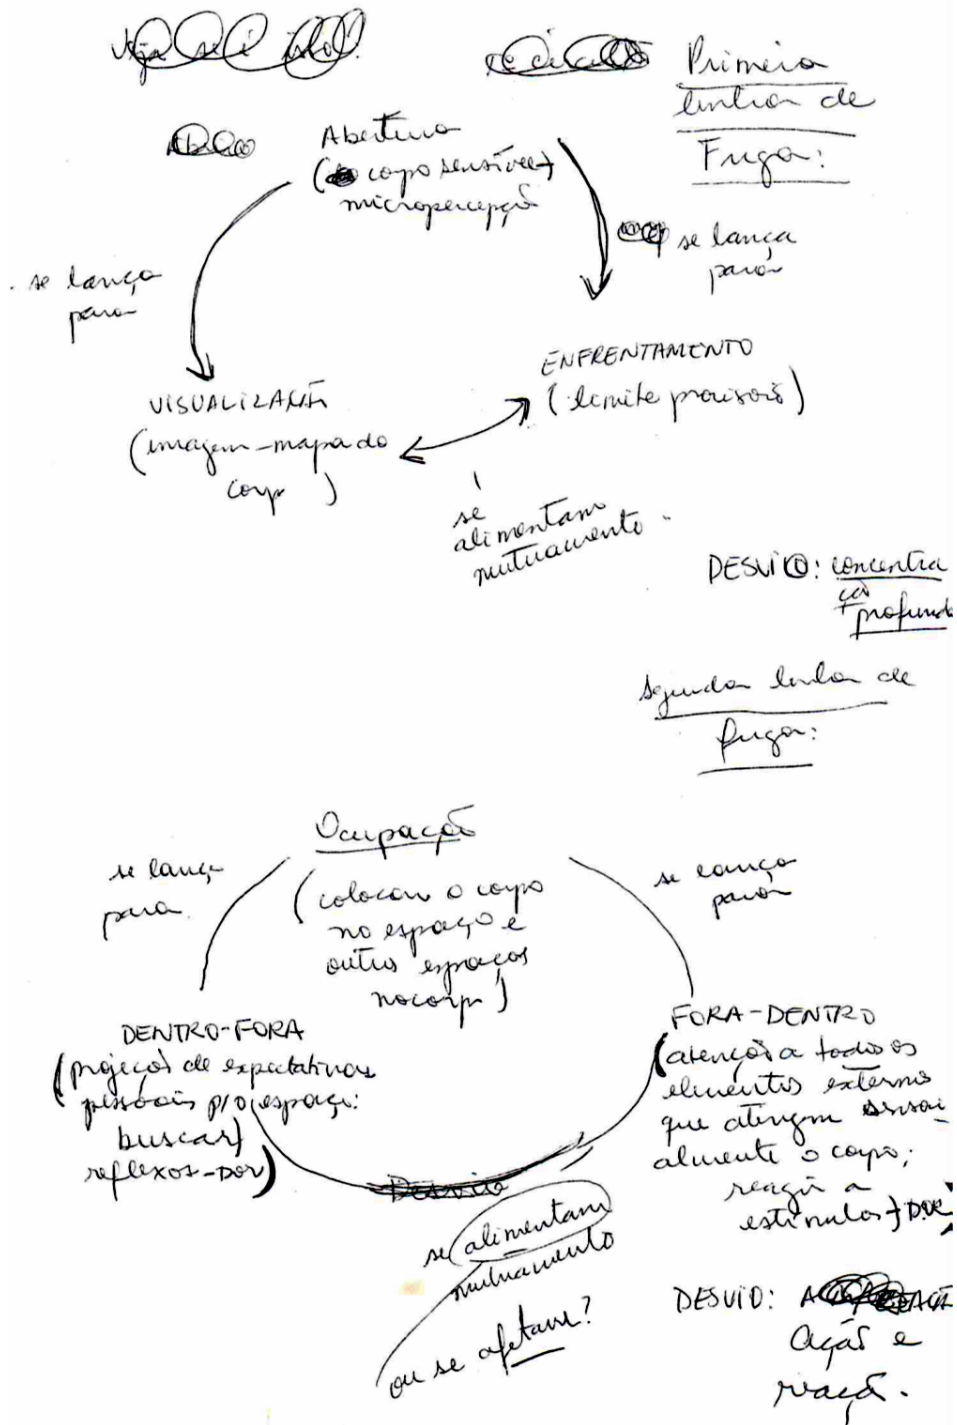 Veja se é isto!
Primeira
linha de
Fuga:
Abertura
(corpo sensível +
micropercepção
se lança
para
se lança
para
ENFRENTAMENTO
(limite provisório)
VISUALIZAÇÃO
(imagem-mapa do
corpo)
se
alimentam
mutuamente
DESVIO: concentra
ção
+ profunda
Segunda linha de
fuga:
Ocupação
se lança
para
(colocar o corpo
no espaço e
outros espaços
no corpo)
se lança
para
DENTRO-FORA
(projeção de expectativas
pessoais p/ o espaço:
buscar)
reflexos-DOR)
FORA-DENTRO
(atenção a todos os
elementos externos
que atingem sensoi-
almente o corpo;
reagir a
estímulos + DOR
Desvio
se alimentam
mutuamente
ou se afetam?
DESVIO:
Ação e
reação.